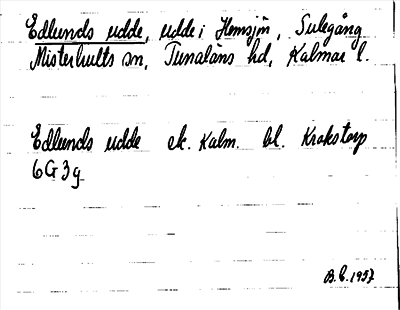 Edlunds udde, udde i Hemsjön, Sulegång
Misterhults sn, Tunaläns hd, Kalmar l.
Edlunds udde ek. Kalm. bl. Krakstorp
6G3g
B.C. 1957